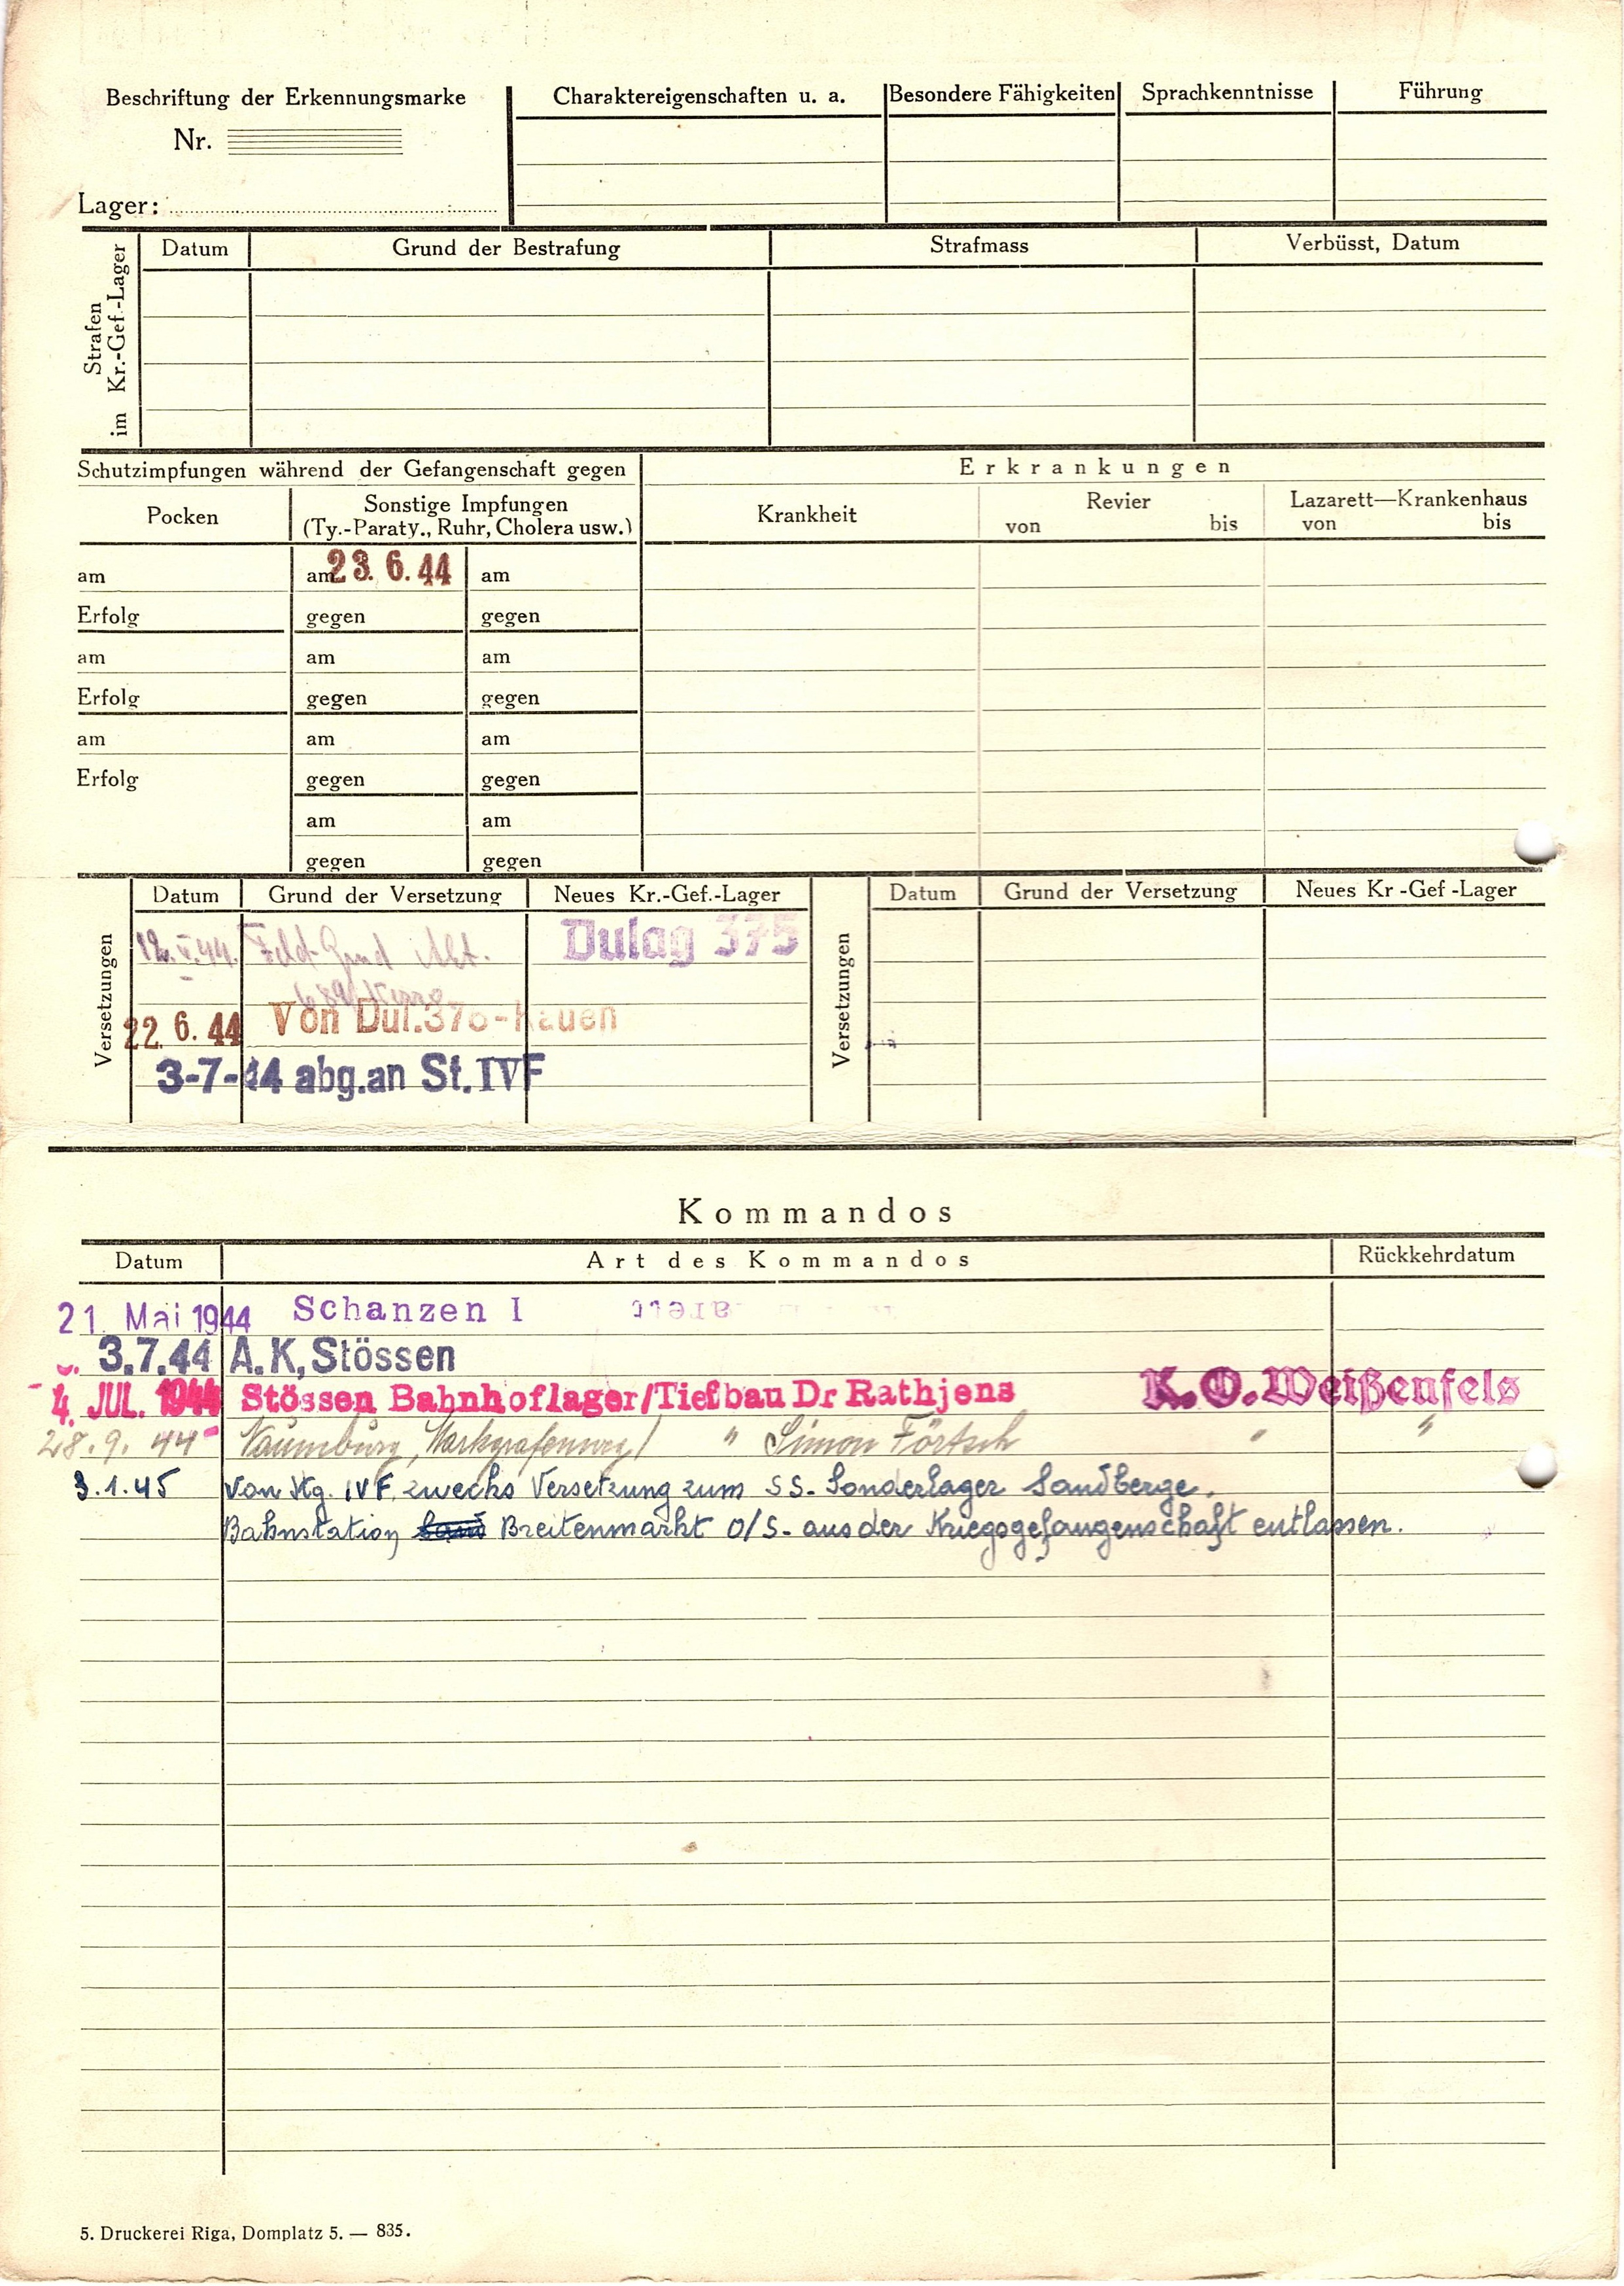 Beschriftung der Erkennungsmarke
Nr.
Lager:
Charaktereigenschaften u. a.
Besondere Fähigkeiten
Sprachkenntnisse
Führung
Strafen
im Kr.-Gef.-Lager
Datum
Grund der Bestrafung
Strafmass
Verbüsst, Datum
Schutzimpfungen während der Gefangenschaft gegen
Erkrankungen
Pocken
Sonstige Impfungen
(Ty.-Paraty., Ruhr, Cholera usw.)
Krankheit
Revier
von bis
Lazarett—Krankenhaus
von bis
am am 23. 6. 44 am
Erfolg gegen gegen
am am am
Erfolg gegen gegen
am am am
Erfolg gegen gegen
am am
gegen gegen
Versetzungen
Datum Grund der Versetzung Neues Kr.-Gef.-Lager
Dulag 375
22. 6. 44 Von Dul. 375-Kauen
3-7-44 abg.an St.IVF
Versetzungen
Datum Grund der Versetzung Neues Kr-Gef-Lager
Kommandos
Datum Art des Kommandos Rückkehrdatum
21. Mai 1944 Schanzen I
3.7.44 A.K,Stössen
4. JUL. 1944 Stössen Bahnhoflager/Tiefbau Dr Rathjens K.O.Weißenfels
28.9.44 Naumburg, Markgrafenweg/ " Simon Förtsch " "
3.1.45 von Kg. IVF zwecks Versetzung zum SS-Sonderlager Sandberge.
Bahnstation Breitenmarkt O/S- aus der Kriegsgefangenschaft entlassen.
5. Druckerei Riga, Domplatz 5. — 835.